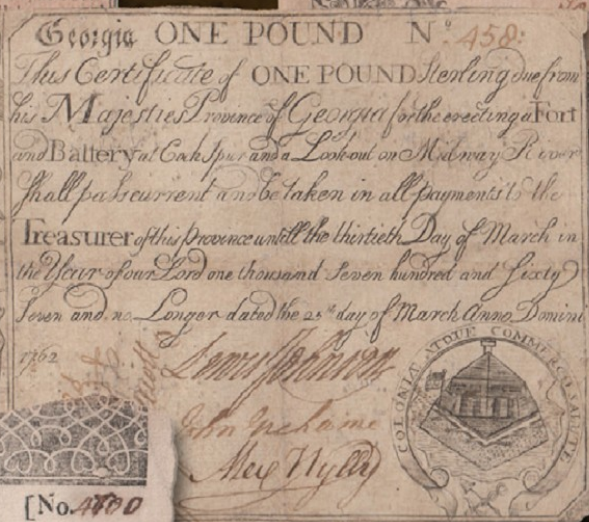 Georgia ONE POUND No. 458:
This Certificate of ONE POUND Sterling due from
his Majesties Province of Georgia for the erecting a Fort
and Battery at Cockspur and a Lookout on Midway River
Shall pass current and be taken in all payments to the
Treasurer of this Province untill the thirtieth Day of March in
the Year of our Lord one thousand Seven hundred and Sixty
Seven and no Longer dated the 25th day of March Anno Domini
1762
Lewis Johnson
John Grahame
Alex Wylly
COLONIÆ ATQUE COMMERCIO SALUTE
[No. 4700